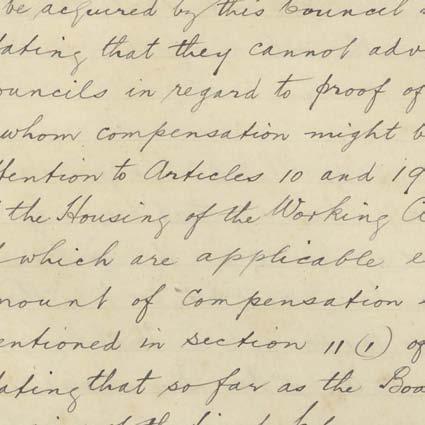 be acquired by this Council
stating that they cannot adv
ouncils in regard to proof of
whom compensation might b
ttention to Articles 10 and 19
the Housing of the Working Cl
which are applicable e
mount of Compensation
entioned in section 11 (1) of
tating that so far as the Boa